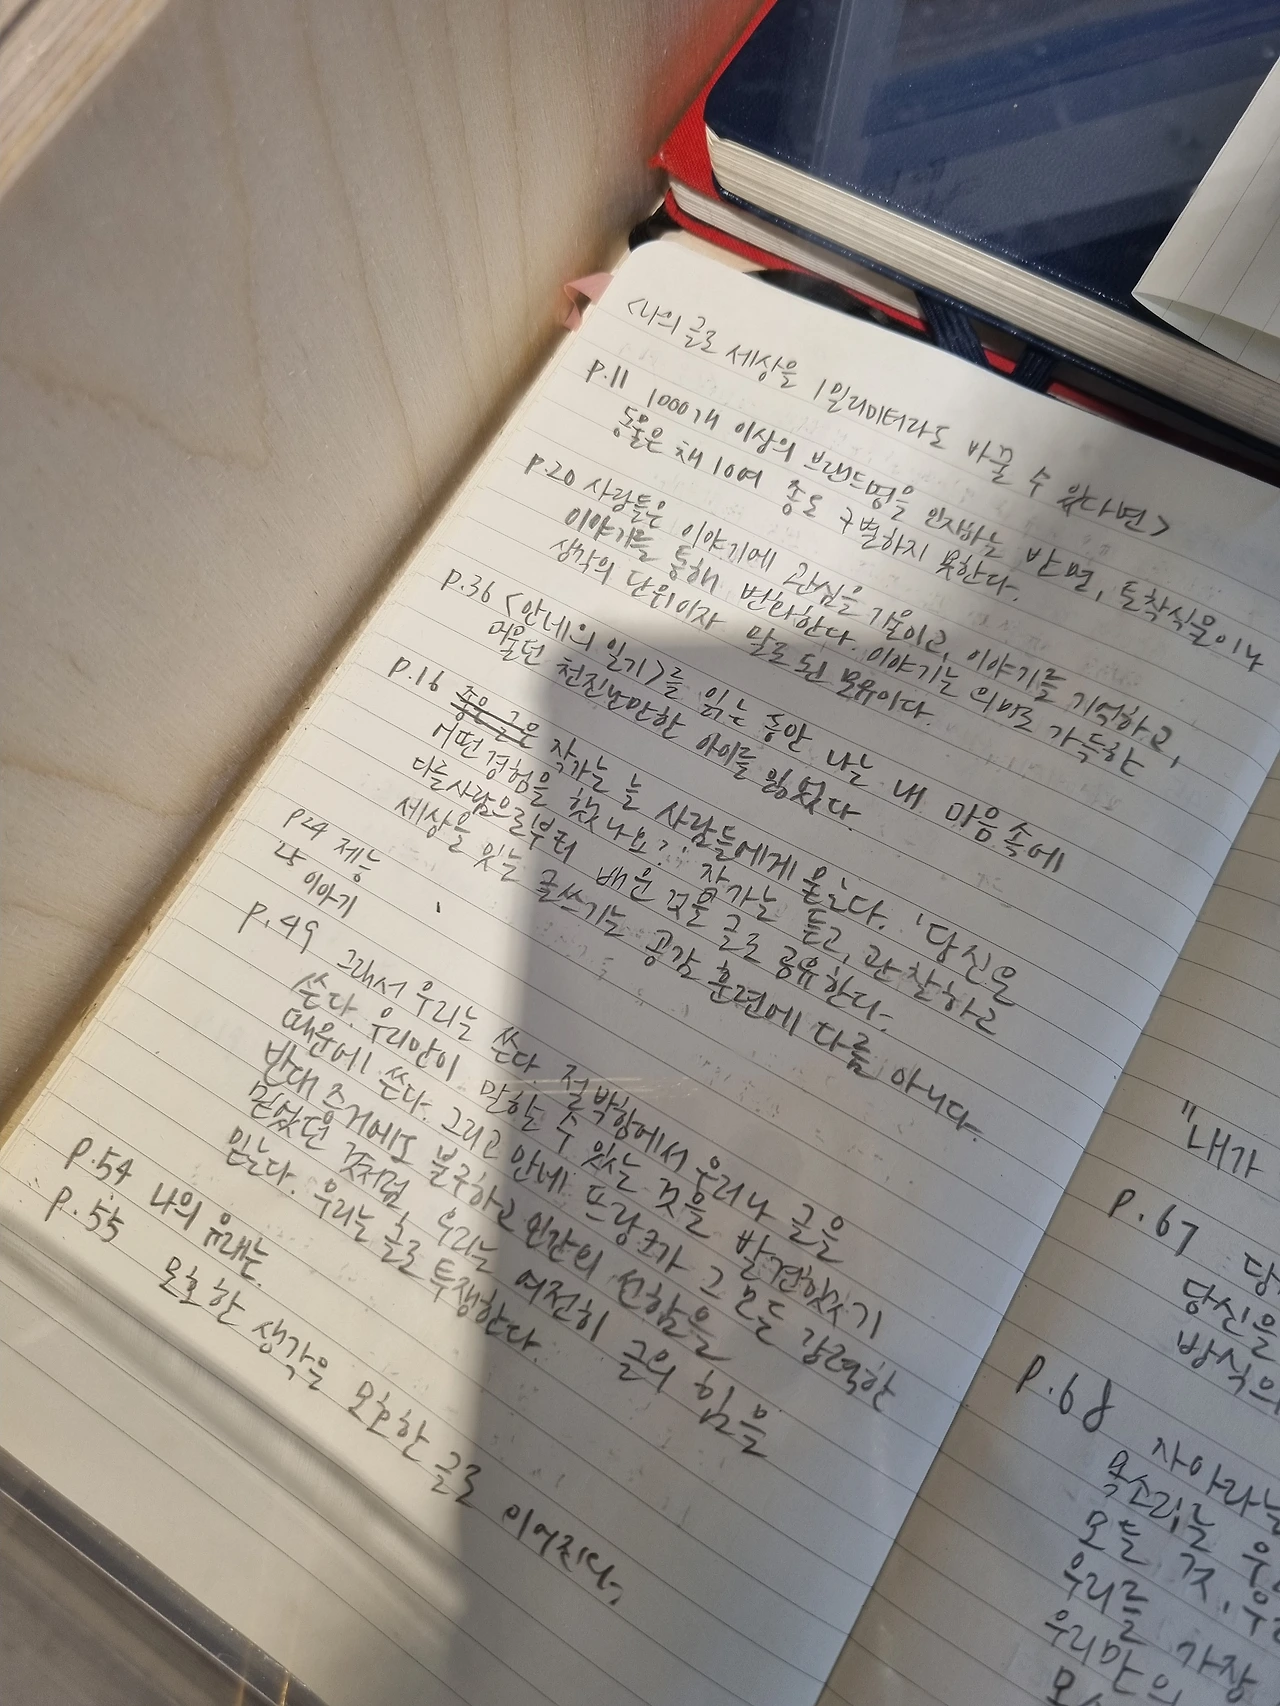 <나의 글로 세상을 1밀리미터라도 바꿀 수 있다면>
p.11 1000개 이상의 브랜드명을 인지하는 반면, 토착식물이나
동물은 채 10여 종도 구별하지 못한다.
p.20 사람들은 이야기에 관심을 기울이고, 이야기를 기억하고,
이야기를 통해 변화한다. 이야기는 의미로 가득한
생각의 단위이자 말로 된 모유이다.
p.36 <안네의 일기>를 읽는 동안 나는 내 마음속에
머물던 천진난만한 아이를 잃었다.
p.16 좋은 글은 작가는 늘 사람들에게 묻는다. '당신은
어떤 경험을 했나요?' 작가는 듣고, 관찰하고
다른사람으로부터 배운 것을 글로 공유한다.
세상을 잇는 글쓰기는 공감 훈련에 다름 아니다.
p24 제능
이야기
p.49 그래서 우리는 쓴다. 절박함에서 우러나 글을
쓴다. 우리만이 말할 수 있는 것을 발견했기
때문에 쓴다. 그리고 안네 프랑크가 그 모든 강력한
반대 증거에도 불구하고 인간의 선함을
믿었던 것처럼, 우리는 여전히 글의 힘을
믿는다. 우리는 글로 투쟁한다.
p.54 나의 유래는
p.55 모호한 생각을 모호한 글로 이어진다.
"내가
p.67
당신을
방식의
p.68 자아라는
목소리는
모든 것,
우리를 가장
우리만의